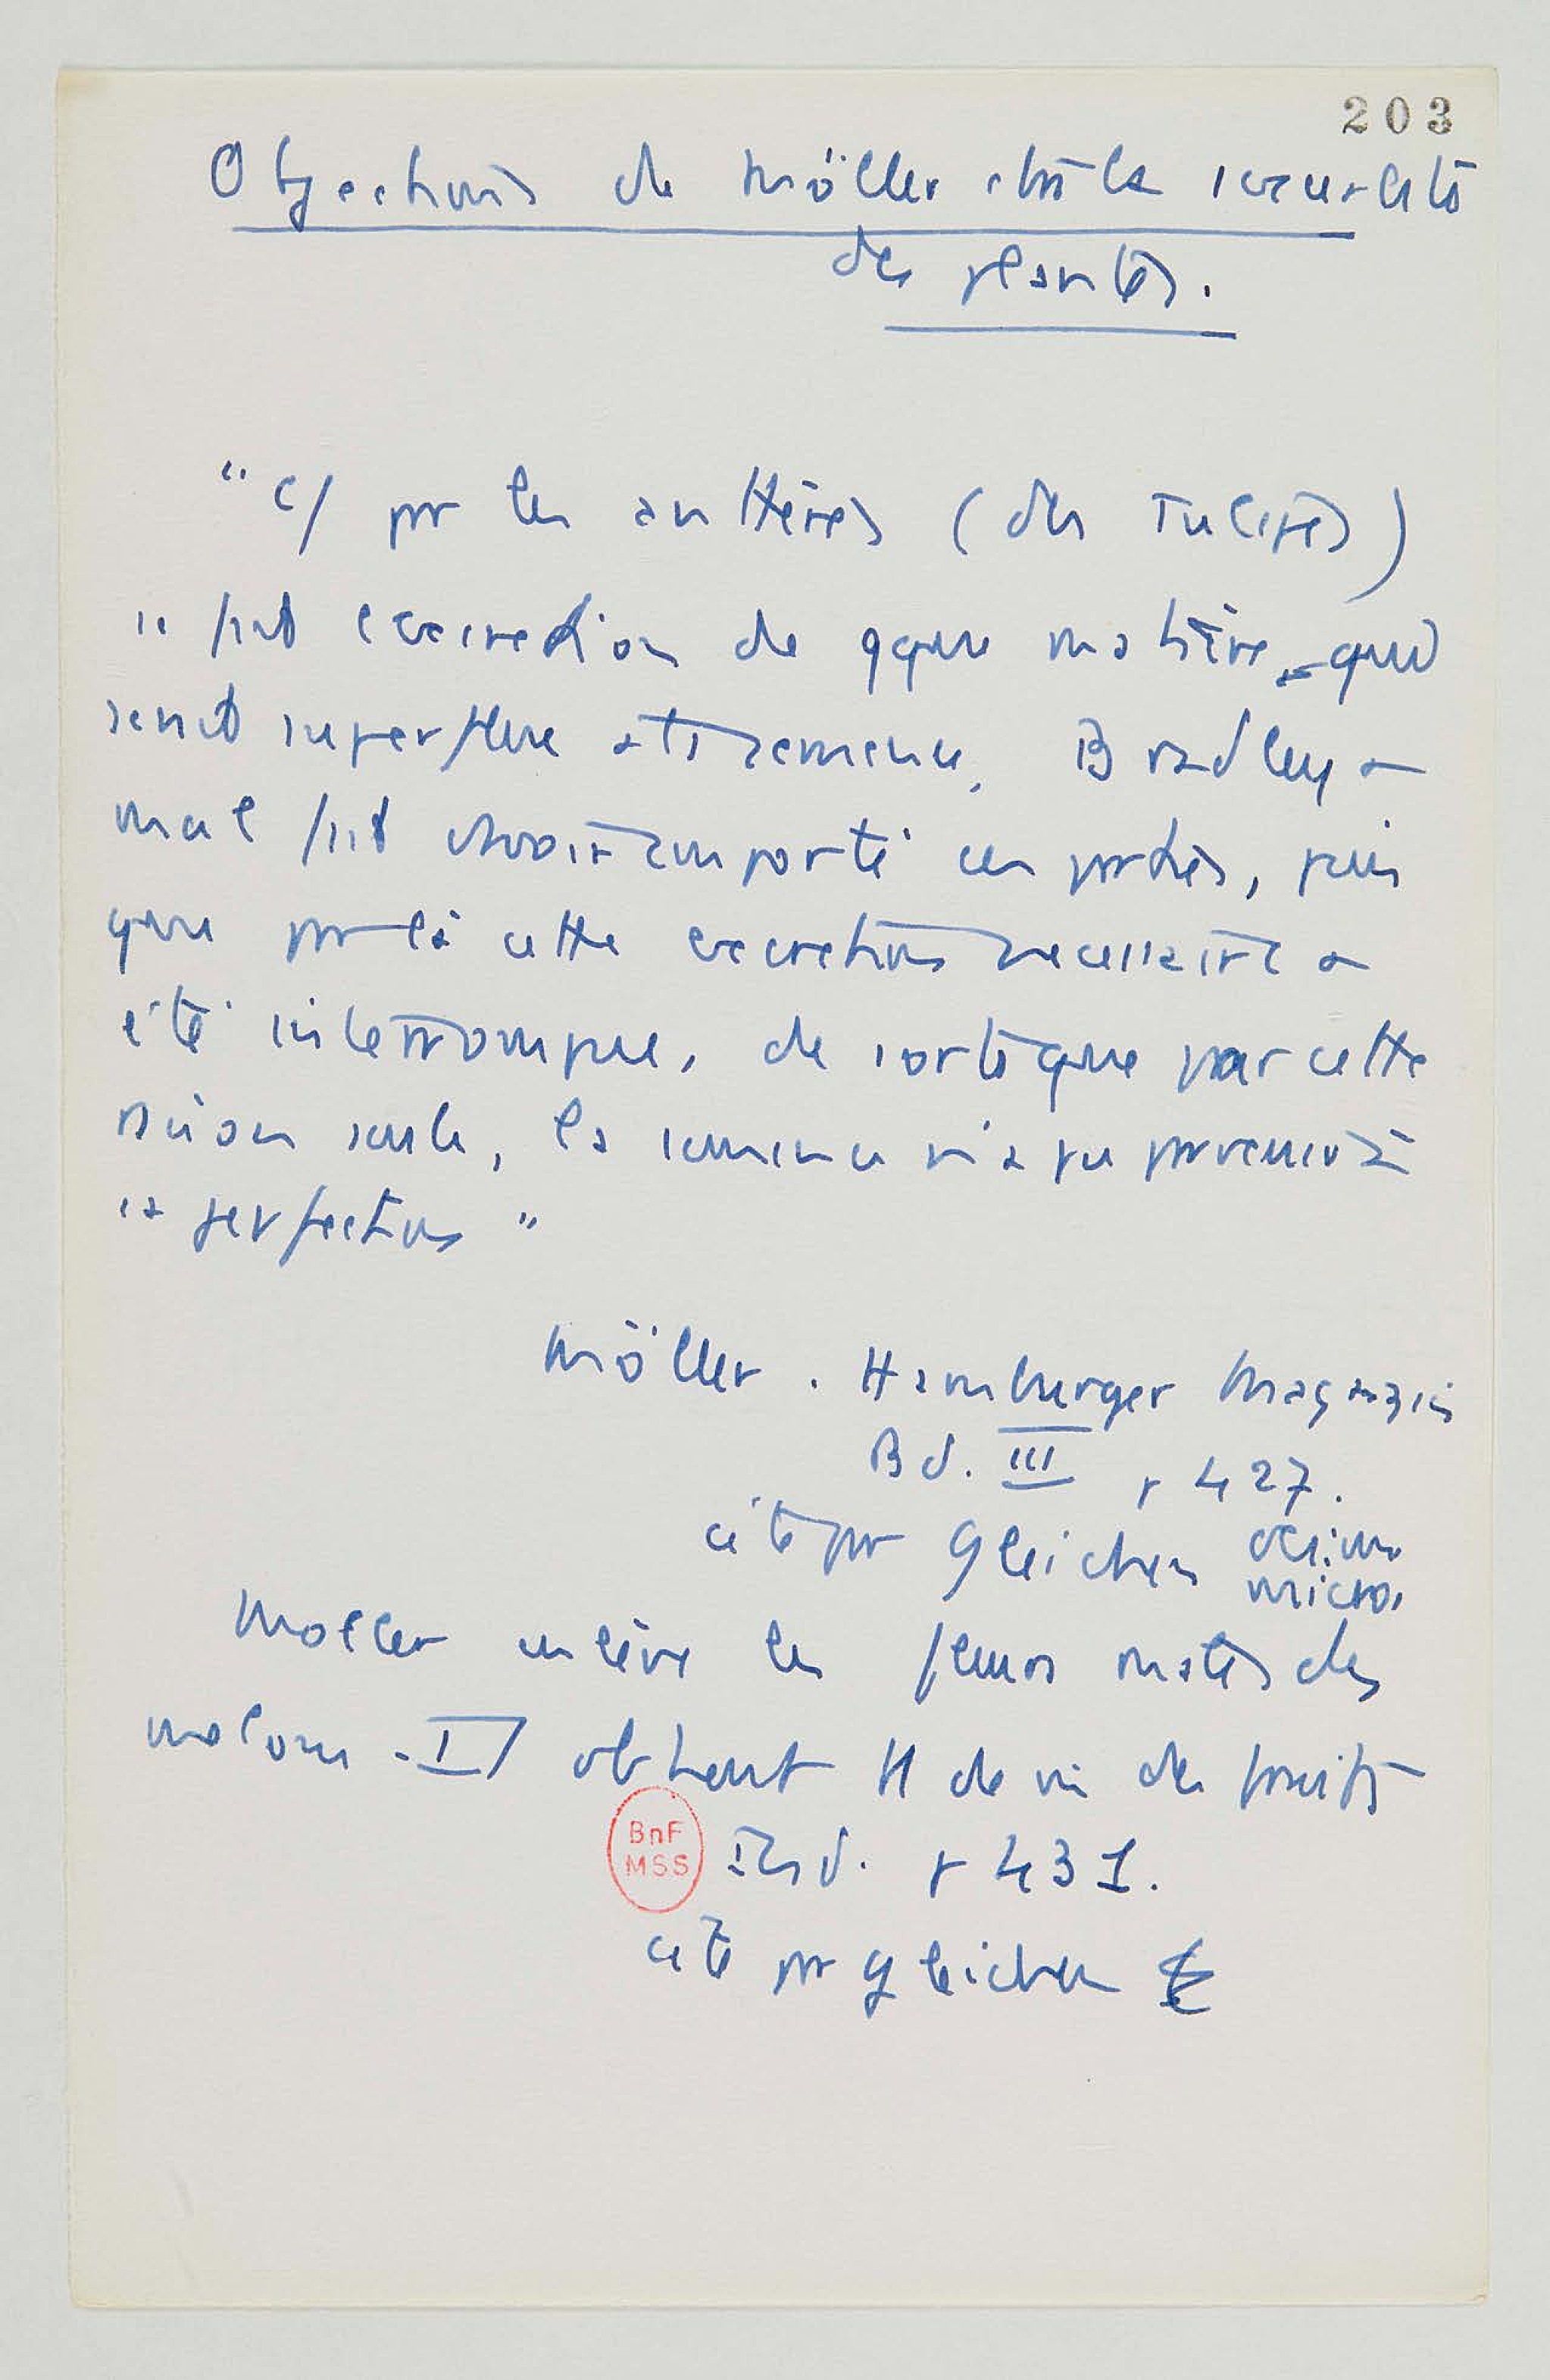 203
Objections de Möller ctre la sexualité
des plantes.
"C/ par les anthères (des Tulipes)
se fait l'excretion de qque matière qui
serait superflue à la semence, Bradley a
mal fait d'avoir emporté ces parties, puis
que par là cette excretion necessaire a
été interrompue, de sorte que par cette
raison seule, la semence n'a pu parvenir à
sa perfection"
Möller. Hamburger Magazin
Bd. III p 427.
cité par Gleichen
micro.
Moller enlève les fleurs mâles des
melons. Il obtient de des fruits
Ibid. p 431.
cité par Gleichen
BnF
MSS